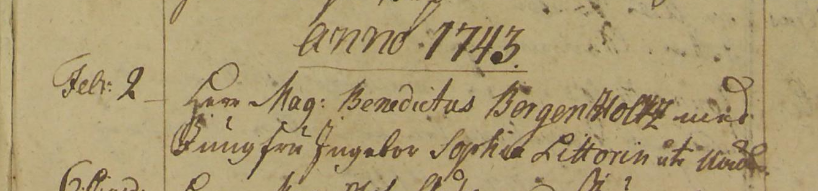 anno 1743.
Febr: 2
Herr Mag: Benedictus BergenHoltz med
Jungfru Ingebor Sophia Littorin uti